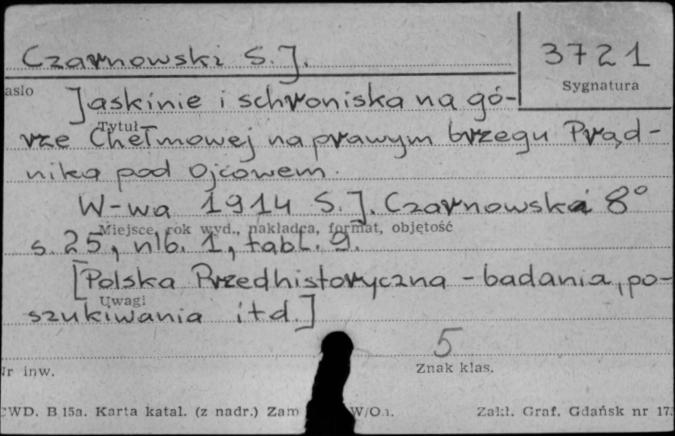 Czarnowski S. J.
3721
asło
Sygnatura
Jaskinie i schroniska na gó-
Tytuł
rze Chełmowej na prawym brzegu Prąd-
nika pod Ojcowem.
W-wa 1914 S. J. Czarnowski 8°
Miejsce, rok wyd., nakładca, format, objętość
s. 25, nlb. 1, tabl. 9.
[Polska Przedhistoryczna - badania, po-
Uwagi
szukiwania itd.]
5
Nr inw.
Znak klas.
CWD. B 15a. Karta katal. (z nadr.) Zam W/O
Zakł. Graf. Gdańsk nr 17